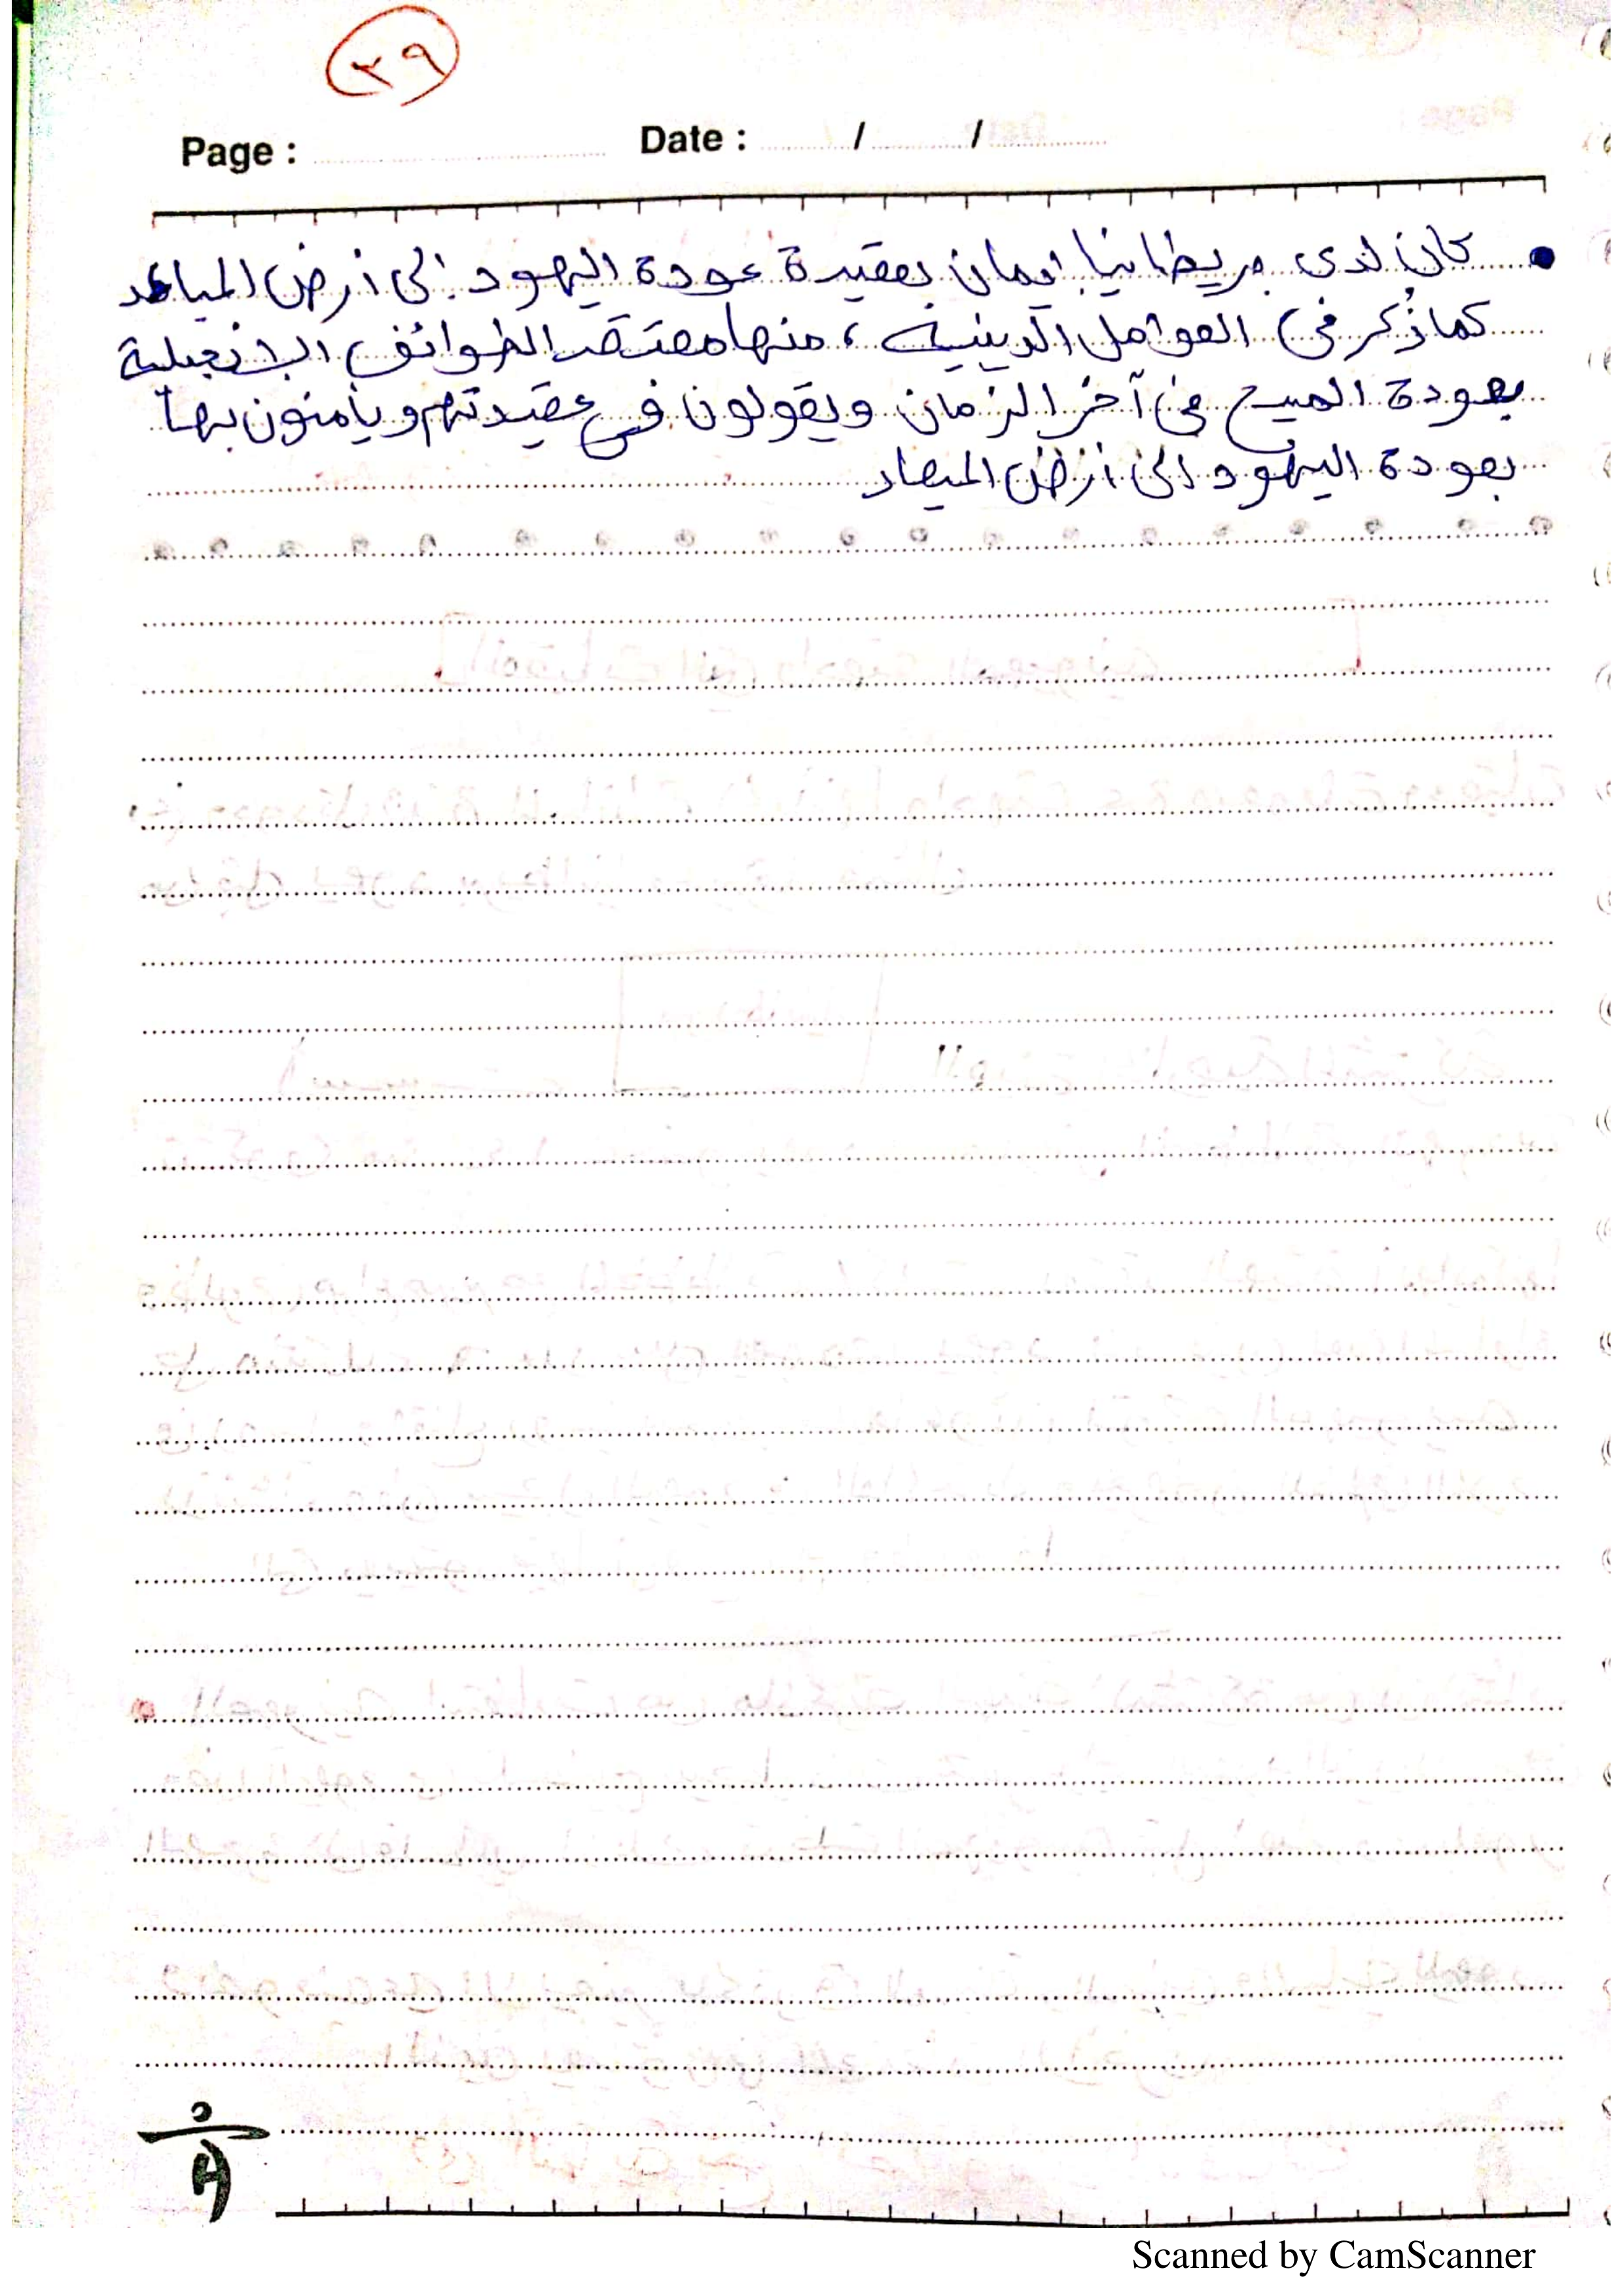 ٣٩
Page : Date : / /
• كان لدى بريطانيا ايمان بعقيدة عودة اليهود الى أرض المياعد
كما ذُكر في العوامل الدينية ، منها معتقد الطوائف الانجيلية
بعودة المسيح في آخر الزمان ويقولون في عقيدتهم ويأمنون بها
بعودة اليهود الى أرض الميعاد
Scanned by CamScanner